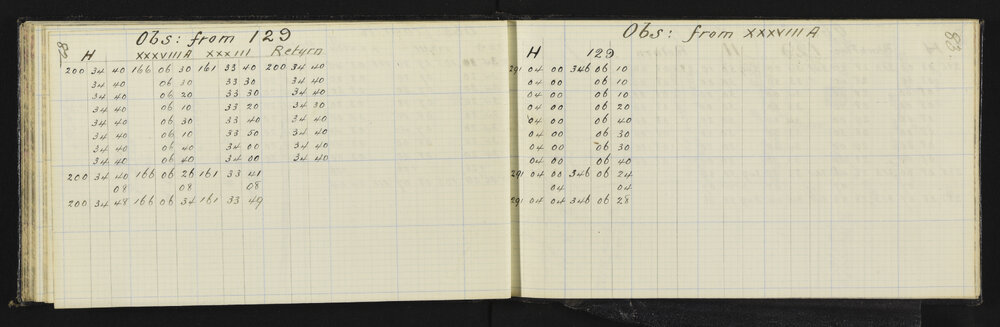 Obs: from 129
H XXXVIII A XXXIII Return
200 34 40 166 06 30 161 33 40 200 34 40
34 40 06 30 33 30 34 40
34 40 06 20 33 30 34 40
34 40 06 10 33 20 34 30
34 40 06 30 33 40 34 40
34 40 06 10 33 50 34 40
34 40 06 40 34 00 34 40
34 40 06 40 34 00 34 40
200 34 40 166 06 26 161 33 41
08 08 08
200 34 48 166 06 34 161 33 49
Obs: from XXXVIII A
H 129
291 04 00 346 06 10
04 00 06 10
04 00 06 10
04 00 06 20
04 00 06 40
04 00 06 30
04 00 06 30
04 00 06 40
291 04 00 346 06 24
04 04
291 04 04 346 06 28